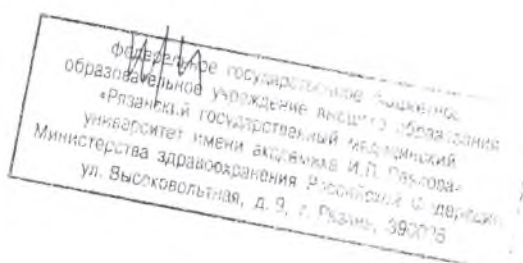 федеральное государственное бюджетное
образовательное учреждение высшего образования
«Рязанский государственный медицинский
университет имени академика И.П. Павлова»
Министерства здравоохранения Российской Федерации
ул. Высоковольтная, д. 9, г. Рязань, 390026